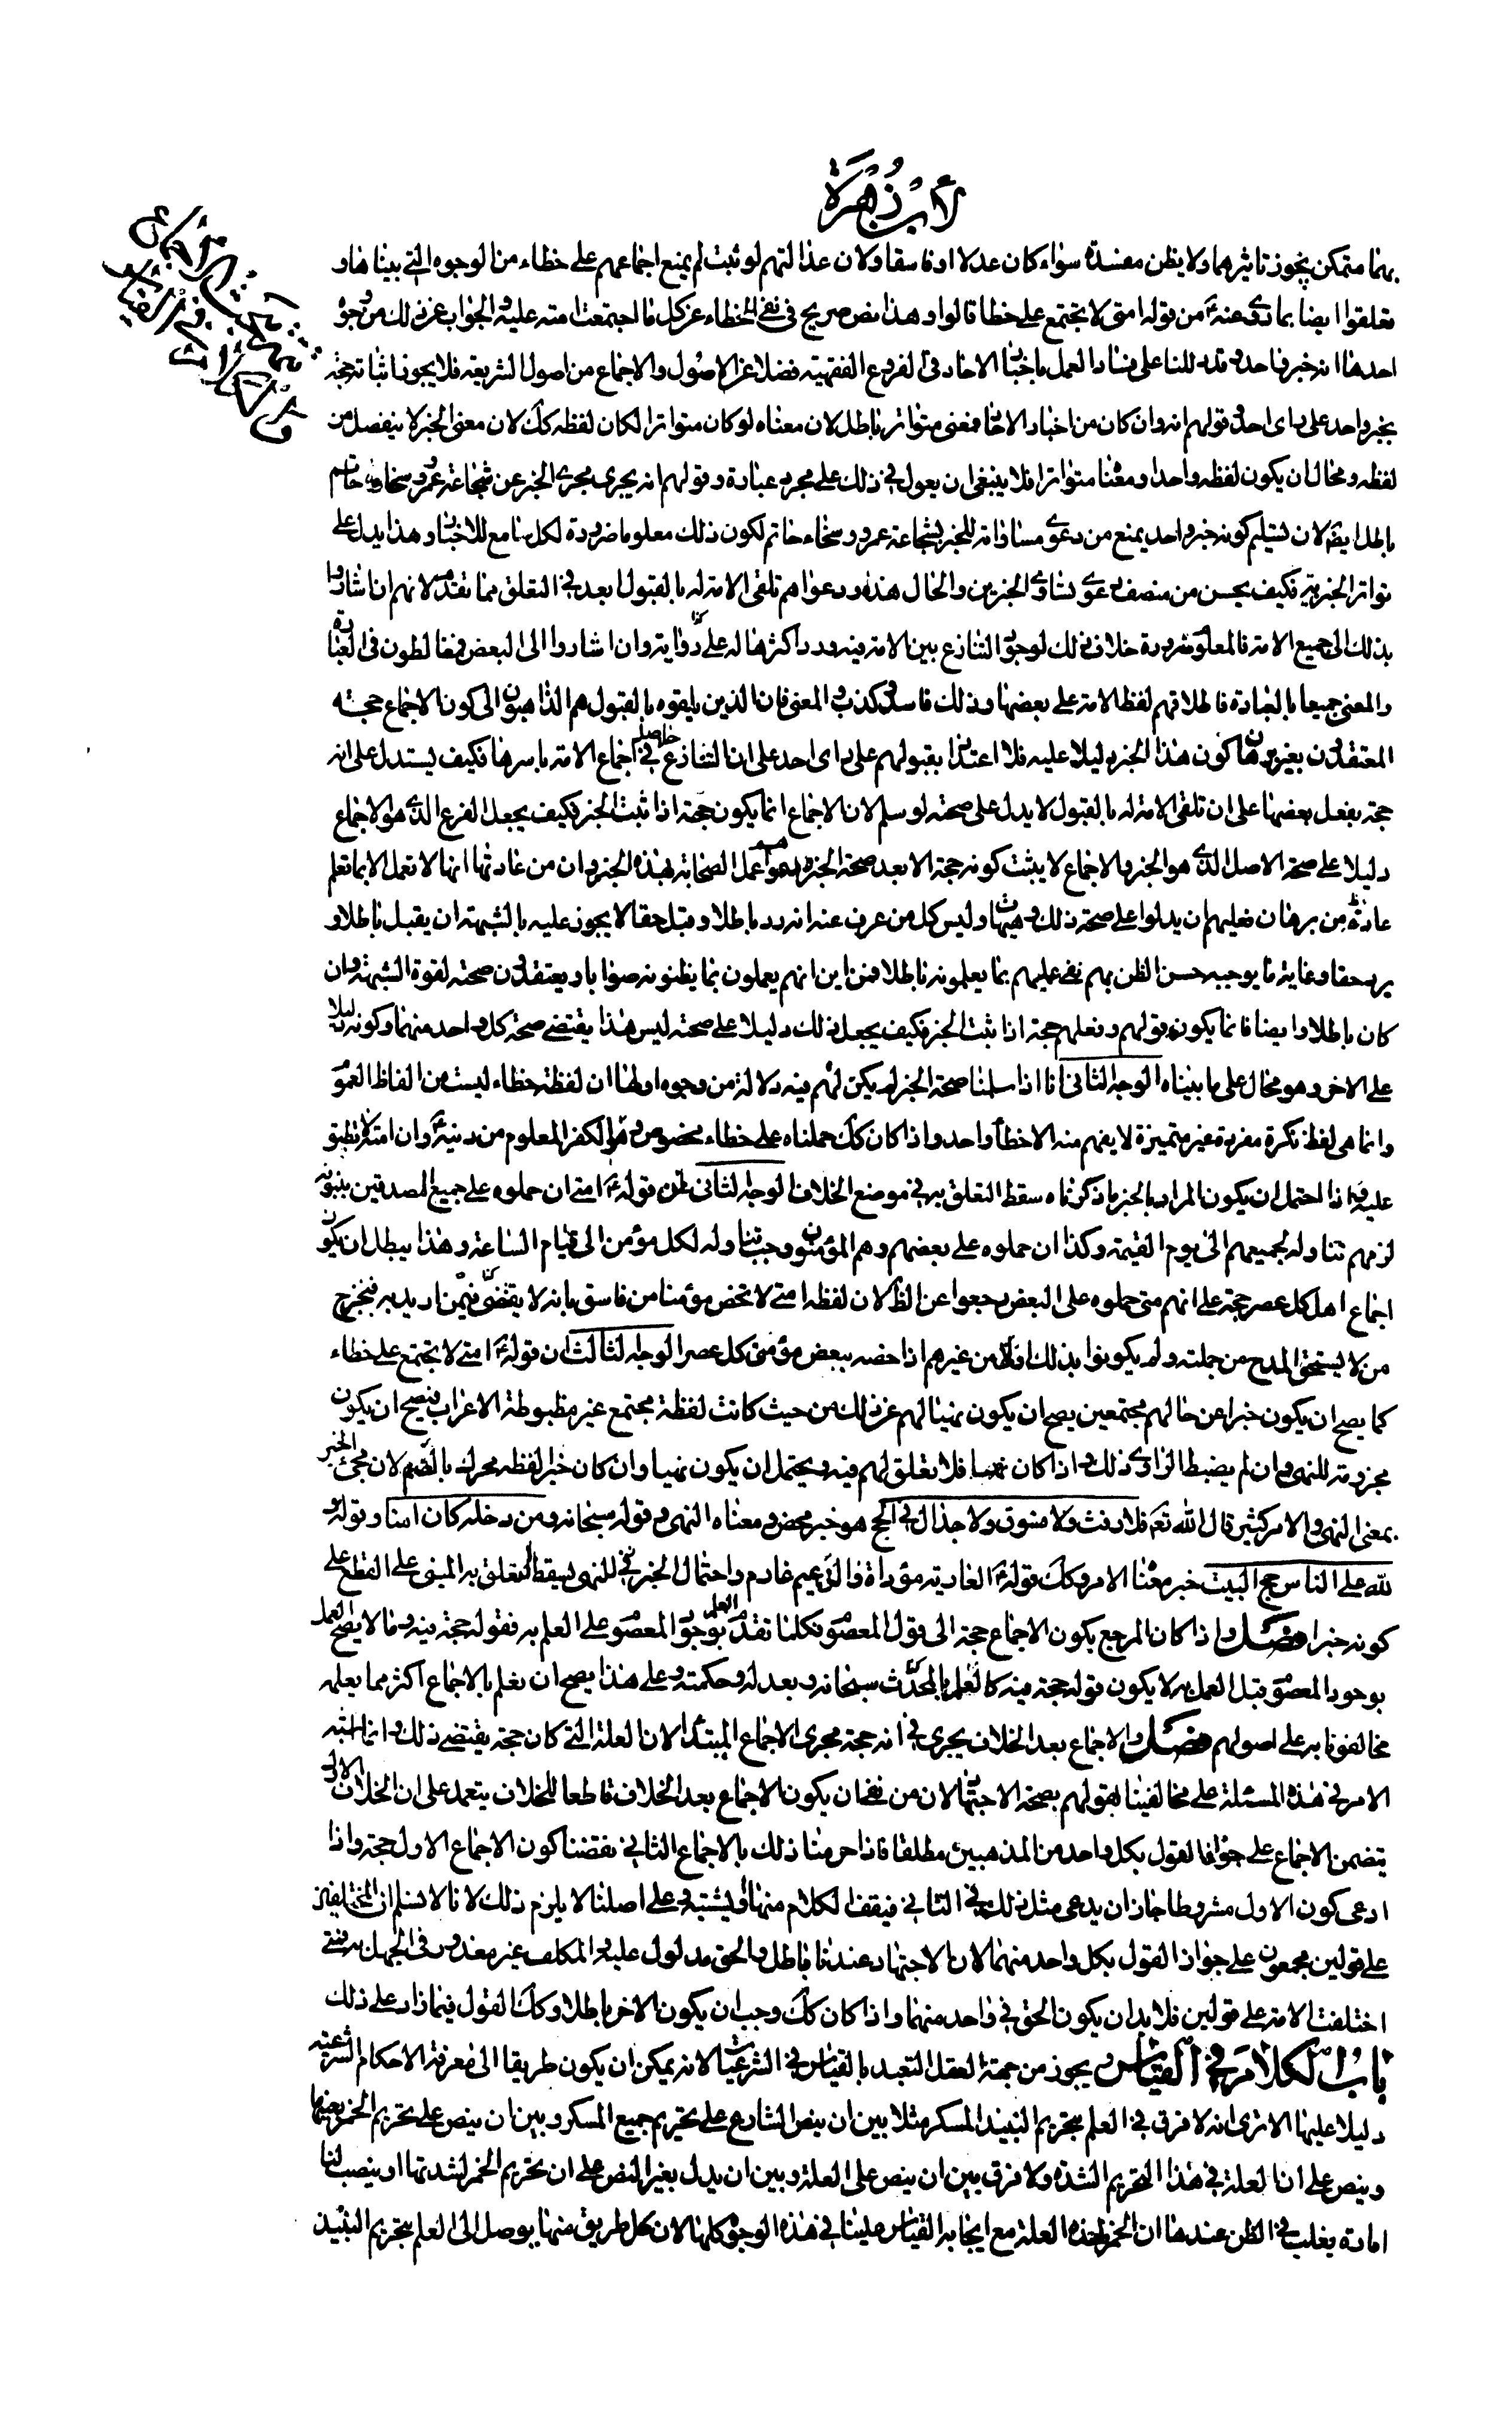 لابن زهرة
بهما متمكن يجوز تاثيرهما ولا يظن مفسدة سواء كان عدلا او فاسقا ولان عدالتهم لو ثبت لم يمنع اجماعهم على خطاء من الوجوه التي بيناها و
تعلقوا ايضا بما روى عنه ع من قوله امتى لا تجتمع على خطا قالوا وهذا نص صريح فى نفى الخطاء عن كل ما اجتمعت امته عليه والجواب عن ذلك من وجوه
احدها انه خبر واحد وقد دللنا على فساد العمل باخبار الاحاد فى الفروع الفقهية فضلا عن الاصول والاجماع من اصول الشريعة فلا يجوز اثباته حجة
بخبر واحد على راى احد وقولهم انه وان كان من اخبار الاحاد فمعنى متواتر باطل لان معناه لو كان متواترا لكان لفظه كك لان معنى الخبر لا ينفصل من
لفظه ومحال ان يكون لفظه واحدا ومعناه متواترا فلا ينبغى ان يعول فى ذلك على مجرد عبارة وقولهم انه يجرى مجرى الخبر عن شجاعة عمرو وسخاوة حاتم
باطل ايضا لان تسليم كونه خبر واحد يمنع من دعوى مساواته للخبر بشجاعة عمرو وسخاء حاتم لكون ذلك معلوما ضرورة لكل سامع للاخبار وهذا يدل على
تواتر الخبر به فكيف يحسن من منصف دعوى تساوى الخبرين والحال هذه ودعواهم تلقى الامة له بالقبول ابعد فى التعلق مما تقدم لانهم ان اشاروا
بذلك الى جميع الامة فالمعلوم ضرورة خلاف ذلك لوجود التنازع بين الامة فيه ورد اكثرها له على رواية وان اشاروا الى البعض فمغالطون فى العبارة
والمعنى جميعا بالعبارة فاطلاقهم لفظ الامة على بعضها وذلك فاسد وكذب والمعنى فان الذين تلقوه بالقبول هم الذاهبون الى كون الاجماع حجته
المعتقدون بغير برهان كون هذا الخبر دليلا عليه فلا اعتداد بقبولهم على راى احد على ان التنازع حاصل فى اجماع الامة باسرها فكيف يستدل على انه
حجة بفعل بعضها على ان تلقى الامة له بالقبول لا يدل على صحته لو سلم لان الاجماع انما يكون حجة اذا ثبت الخبر فكيف يجعل الفرع الذى هو الاجماع
دليلا على صحة الاصل الذى هو الخبر والاجماع لا يثبت كونه حجة الا بعد صحة الخبر عمل الصحابة بهذا الخبر وان من عادتها انها لا تعمل الا بما تعلم
من برهان فعليهم ان يدلوا على صحة ذلك وهيهات وليس كل من عرف عنه انه رد باطلا وقبل حقا لا يجوز عليه بالشبهة ان يقبل باطلا و
يرد حقا وغاية ما يوجبه حسن الظن بهم نفى عملهم بما يعلمونه باطلا فمن اين انهم يعملون بما يظنونه صوابا ويعتقدون صحته لقوة الشبهة وان
كان باطلا وايضا فانما يكون قولهم وفعلهم حجة اذا ثبت الخبر فكيف يجعل ذلك دليلا على صحته ليس هذا يقتضى صحة كل واحد منهما وكونه دليلا
على الاخر وهو محال على ما بيناه الوجه الثانى انا اذا سلمنا صحة الخبر لم يكن لهم فيه دلالة من وجوه اولها ان لفظة خطاء ليست من الفاظ العموم
وانما هى لفظ نكرة مفردة غير متميزة لا يفهم منه الا خطأ واحد واذا كان كك حملناه على خطاء مخصوص وهو الكفر المعلوم من دينه ع وان امته لا تطبق
عليه واذا احتمل ان يكون المراد بالخبر ما ذكرناه سقط التعلق به فى موضع الخلاف الوجه الثانى قوله ع امتى ان حملوه على جميع المصدقين بنبوته
لزمهم تناوله لجميعهم الى يوم القيمة وكذا ان حملوه على بعضهم وهم المؤمنون وجب تناوله لكل مؤمن الى قيام الساعة وهذا يبطل ان يكون
اجماع اهل كل عصر حجة على انهم متى حملوه على البعض رجعوا عن الظ لان لفظه امتى لا تخص مؤمنا من فاسق بانه لا يقتضى فيمن اريد به فنخرج
من لا يستحق المدح من جملته ولم يكونوا بذلك اولى من غيرهم اذا خصه ببعض مؤمنى كل عصر الوجه الثالث ان قوله ع امتى لا تجتمع على خطاء
كما يصح ان يكون خبرا عن حالهم مجتمعين يصح ان يكون نهيا لهم عن ذلك من حيث كانت لفظة تجتمع غير مظبوطة الاعراب فيصح ان يكون
مجزومة للنهى وان لم يضبط الراوى ذلك واذا كان فلا تعلق لهم فيه ويحتمل ان يكون نهيا وان كان خبرا لفظه محرك بالضم لان مجئ الخبر
بمعنى النهى والامر كثير قال الله تع فلا رفث ولا فسوق ولا جدال فى الحج هو خبر محض ومعناه النهى وقوله سبحانه ومن دخله كان امنا وقوله و
لله على الناس حج البيت خبر معناه الامر وكك قوله ع العارية مؤداة والزعيم غارم واحتمال الخبر للنهى يسقط التعلق به المبنى على القطع على
كونه خبرا فصل واذا كان المرجع بكون الاجماع حجة الى قول المعصوم فكلما تقدم العلم بوجود المعصوم على العلم به فقوله حجة فيه وما لا يصح العلم
بوجود المعصوم قبل العلم به لا يكون قوله حجة فيه كالعلم بالمحدث سبحانه وبعدله وحكمته وعلى هذا يصح ان نعلم بالاجماع اكثر مما يعلمه
مخالفونا به على اصولهم فصل والاجماع بعد الخلاف يجرى فى انه حجة مجرى الاجماع المبتدا لان العلة التى كان حجة يقتضى ذلك وانما اشتبه
الامر فى هذه المسئلة على مخالفينا لقولهم بصحة الاجتهاد لان من نفى ان يكون الاجماع بعد الخلاف قاطعا للخلاف يتعمد على ان الخلاف الاول
يتضمن الاجماع على جواز القول بكل واحد من المذهبين مطلقا فاذا حرمنا ذلك بالاجماع الثانى نقضنا كون الاجماع الاول حجة واذا
ادعى كون الاول مشروطا جاز ان يدعى مثل ذلك فى الثانى فيقف الكلام منها ويشتبه وعلى اصلنا لا يلزم ذلك لانا لا نسلم ان المختلفين
على قولين مجمعون على جواز القول بكل واحد منهما لان الاجتهاد عندنا باطل والحق مدلول عليه والمكلف غير معذور فى الجهل به فمتى
اختلفت الامة على قولين فلا بد ان يكون الحق فى واحد منهما واذا كان كك وجب ان يكون الاخر باطلا وكك القول فيما زاد على ذلك
باب الكلام فى القياس يجوز من جهة العقل التعبد بالقياس فى الشرعيات لانه يمكن ان يكون طريقا الى معرفة الاحكام الشرعية
دليلا عليها الا ترى انه لا فرق فى العلم بتحريم النبيذ المسكر مثلا بين ان ينص الشارع على تحريم جميع المسكر وبين ان ينص على تحريم الخمر بعينها
وينص على ان العلة فى هذا التحريم الشدة ولا فرق بين ان ينص على العلة وبين ان يدل بغير النص على ان تحريم الخمر لشدتها او ينصب لنا
امارة يغلب فى الظن عندها ان الخمر لهذه العلة مع ايجابه القياس علينا فى هذه الوجوه كلها لان كل طريق منها يوصل الى العلم بتحريم النبيذ